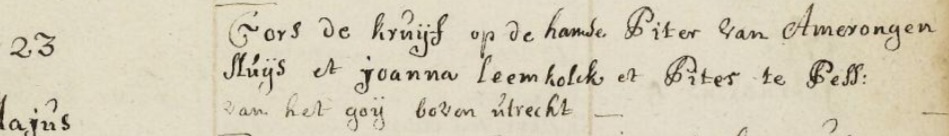 23 Cors de kruijf op de hamse Piter van Amerongen
sluijs et joanna leemkolck et Pites te Pess:
van het goij boven utrecht
Majus